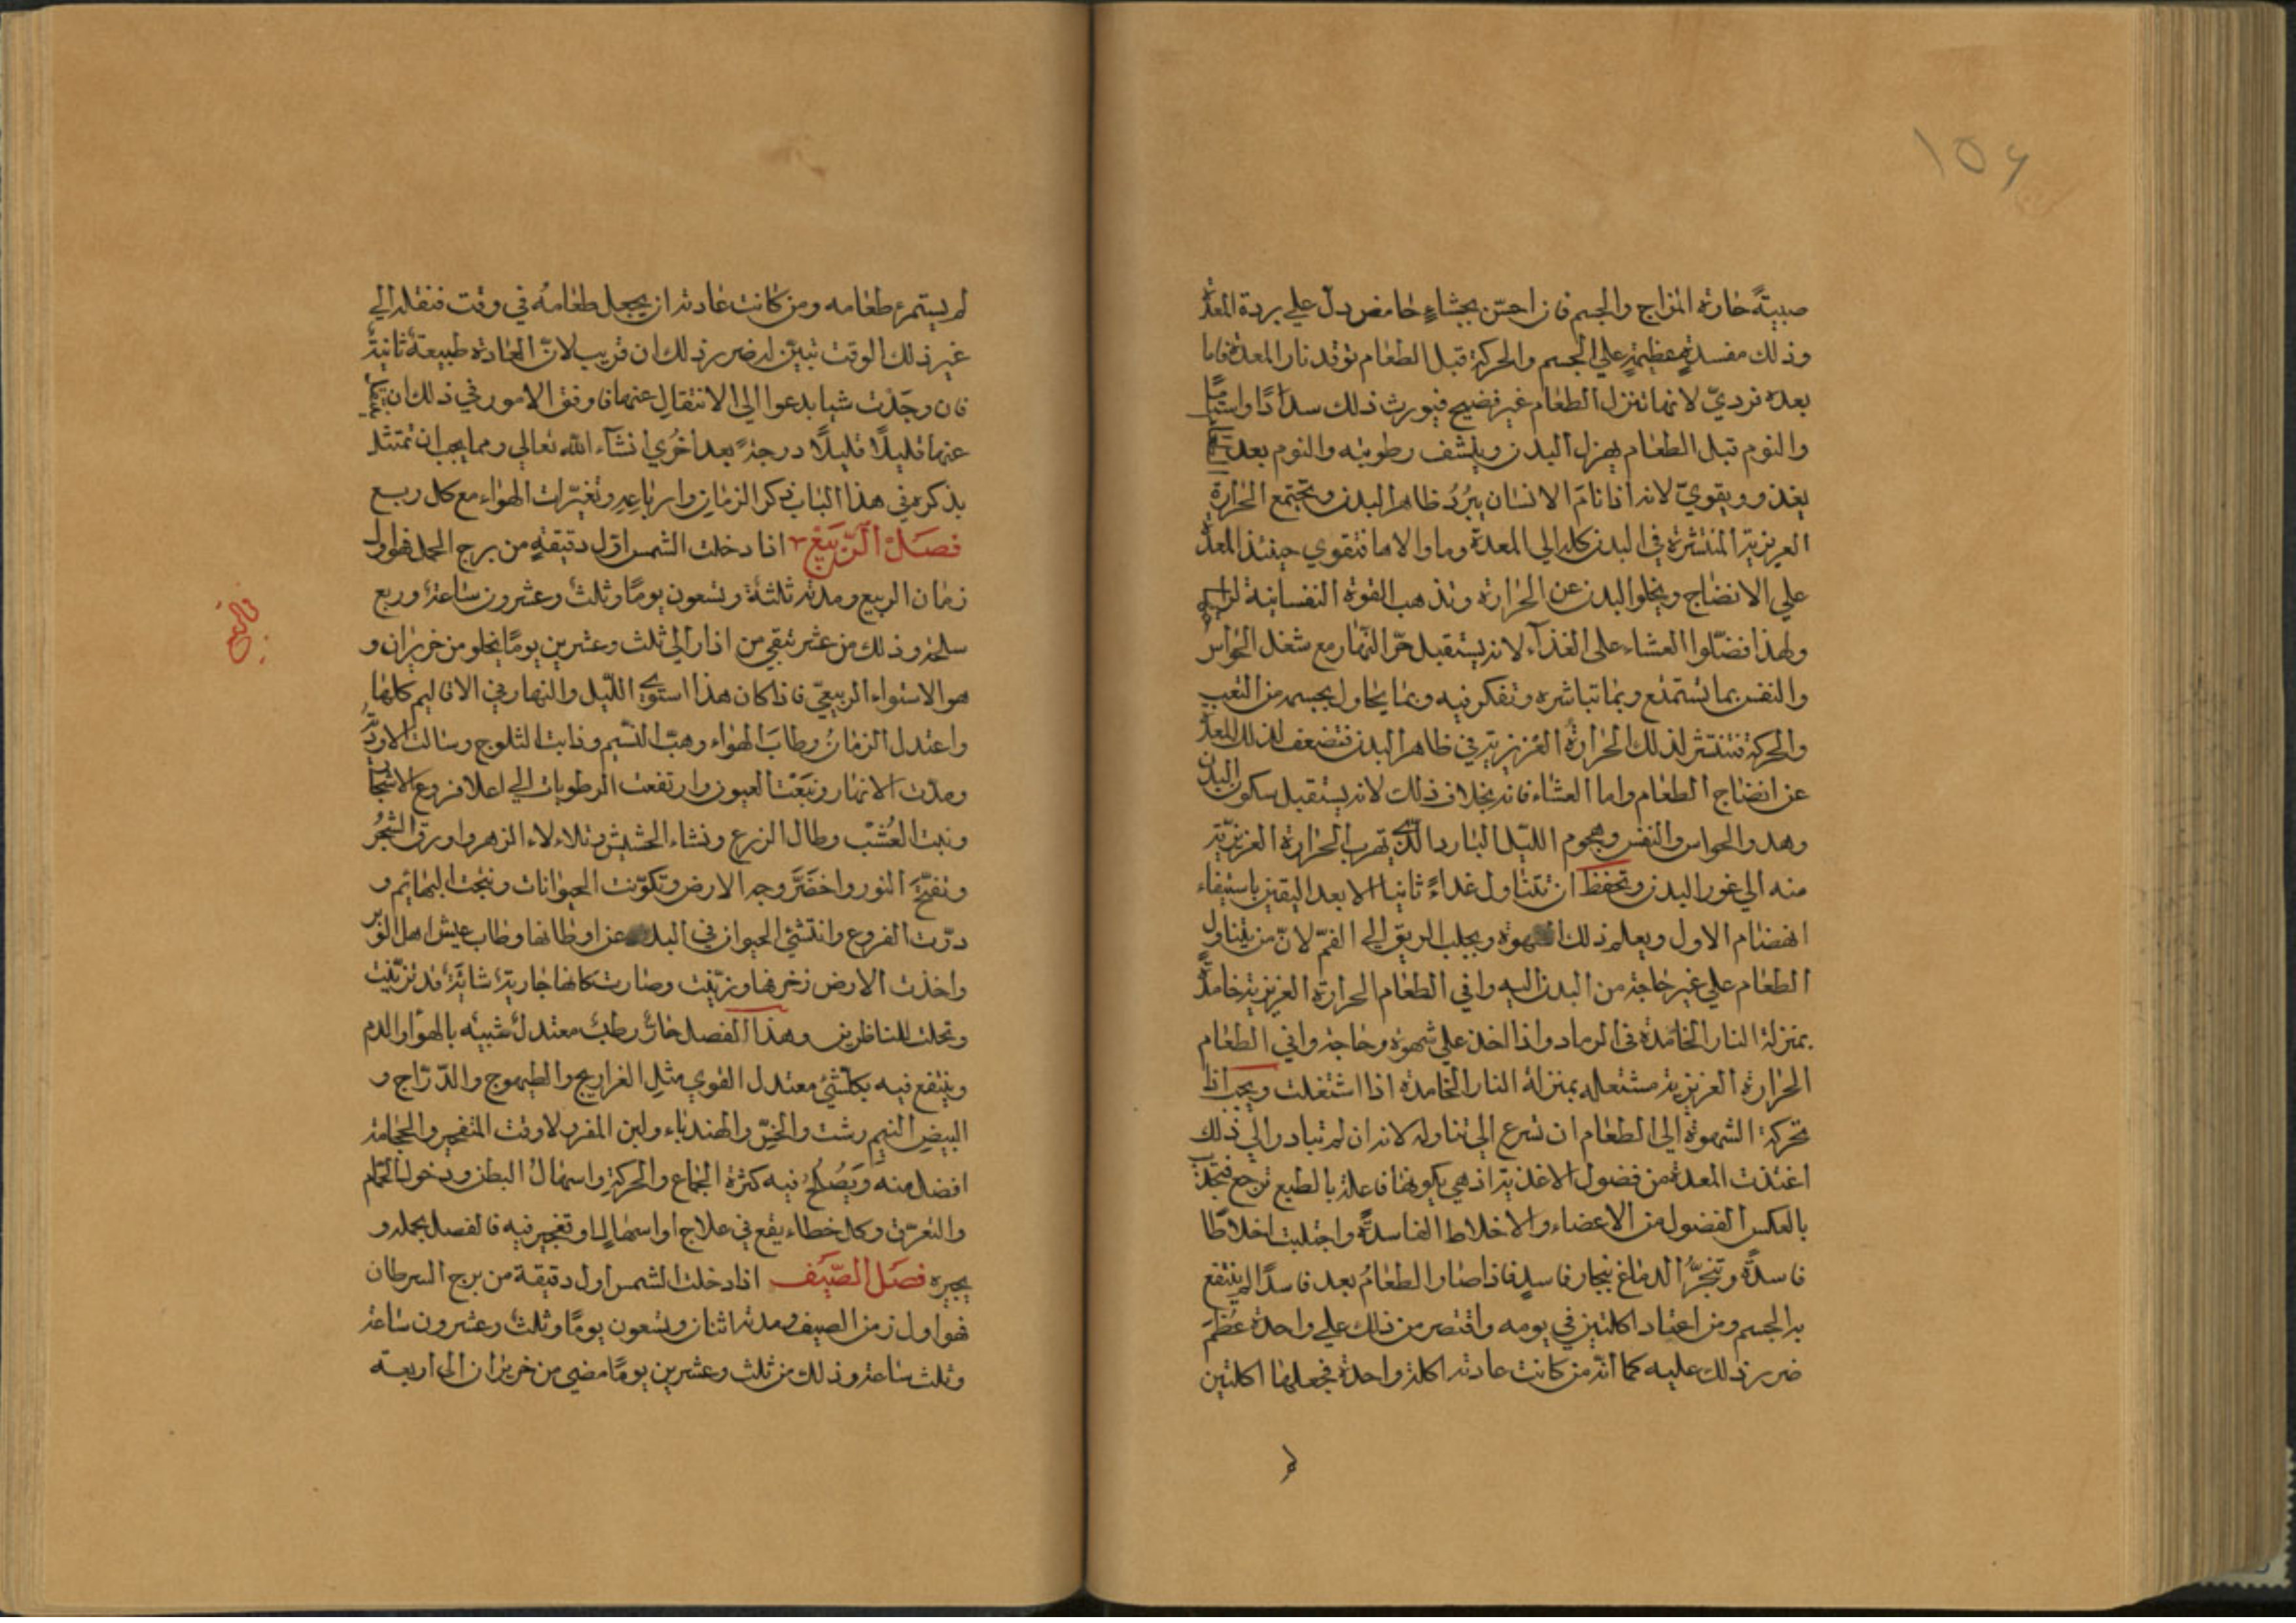 ١٥٤
صبيةً حارة المزاج والجسم فان احسّ بجشاءٍ حامض دلّ علي بردة المعدة
وذلك مفسدةٍ عظيمةٍ علي الجسم والحركة قبل الطعام توقد نار المعدة فاما
بعده فرديّ لانها تنزل الطعام غير نضيج فيورث ذلك سددًا واسقامًا
والنوم قبل الطعام يهزل البدن وينشف رطوبته والنوم بعد الطعام
يغذو ويقويّ لانه اذا نامَ الانسان يبرُدُ ظاهر البدن وتجتمع الحرارة
الغريزية المنتشرة في البدن كله الي المعدة وما والاها فتقوي حينئذ المعدة
علي الانضاج ويخلوا البدن عن الحرارة وتذهب القوة النفسانية
ولهذا فضّلوا العشاء علي الغذآء لانه يستقبل حرّ النّهار مع شغل الحواس
والنفس بما تستمتع وبما تباشره وتفكر فيه وبما يحاول بجسمه من التعب
والحركة فتنتشر لذلك الحرارةُ الغريزية في ظاهر البدن فتضعف لذلك المعدة
عن انضاج الطعام واما العشاء فانه بخلاف ذلك لانه يستقبل سكون البدن
وهدو الحواس والنفس وهجوم الليّل البارد الّذي تهرب الحرارة الغريزيّة
منه الي غور البدن وتحفظ ان تتناول غداءً ثانيا الا بعد اليقين باستيفاء
انهضام الاول ويعلم ذلك الشهوة وبجلب الريق الي الفمّ لانّ من يتناول
الطعام علي غير حاجة من البدن اليه وافي الطعام الحرارة الغريزية خامدةً
بمنزلة النار الخامدة في الرماد واذا اخذ علي شهوة وحاجة وافي الطعام
الحرارة الغريزية مشتعلة بمنزلة النار الخامدة اذا اشتعلت ويجب اذا
تحركة الشهوة الي الطعام ان تسرع الي تناوله لانه ان لم تبادر الي ذلك
اغتذت المعدة من فضول الاغذية اذ هي بكونها فاعلة بالطبع ترجع فتجذب
بالعكس الفضول من الاعضاء والاخلاط الفاسدةً واجتلبت اخلاطًا
فاسدةً وتبخرُّ الدماغ ببخار فاسدٍ فاذا صار الطعامُ بعد فاسدًا لم ينتفع
به الجسم ومن اعتاد اكلتين في يومه واقتصر من ذلك علي واحدة عَظُمَ
ضرر ذلك عليه كما انّه من كانت عادته اكلة واحدة فجعلها اكلتين
لم يستمرء طعامه ومن كانت عادته ان يجعل طعامهُ في وقت فنقله الي
غير ذلك الوقت تبيّن له ضرر ذلك ان قريب لانّ العادة طبيعةٌ ثانيةٌ
فان وجَدْت شيا يدعوا الي الانتقال عنها فاوفق الامور في ذلك ان تنتقل
عنها قليلًا قليلًا درجةً بعد اخُري انشآء الله تعالي ومما يجب ان تمتثل
بذكره في هذا الباب ذكر الزمان وارباعِهِ وتَغيّرات الهواء مع كل ربع
فصَلْ الّربَيْع اذا دخلت الشمس اوّل دقيقةٍ من برج الحمل فهو اول
زمان الربيع ومدته ثلثةٌ وتسعون يومًا وثلثٌ وعشرون ساعةٌ وربع
ساعةٍ وذلك من عشرٍ تبقي من اذار الي ثلث وعشرين يومًا يخلو من حزيران و
هو الاستواء الربيعيّ فاذا كان هذا استوي اللّيل والنهار في الاقاليم كلها
واعتدل الزمانُ وطابَ الهواء وهبّ النّسيم وذابت الثلوج وسالت الاودية
ومدّت الانهار ونبَعَتْ العيون وارتفعت الرطوبات الي اعلا فروع الاشجار
ونبت العُشْب وطال الزرع ونشاء الحشيش وتلاءلاء الزهر واورق الشجرُ
وتفتّح النور واخضَرَّ وجه الارض وتكوّنت الحيوانات ونتجت البهائم و
درّت الفروع وانتشئ الحيوان في البلد عن اوطانها وطاب عيش اهل الوبر
واخذت الارض زخرفها وزيّنت وصارت كانها جاريةٌ شابّةٌ قد تزيّنت
وتحلت للناظرين وهذا الفصل حارٌّ رطبٌ معتدلٌ شبيه بالهواء والدم
وينتفع فيه بكلّ شئٍ معتدل القوي مثل الفراريج والطيهوج والدّرّاج و
البيض النيم رشت والخسّ والهندباء ولبن المعز ولا وقت للتفجير والحجامة
افضل منه ويَصْلحُ فيه كثرة الجماع والحركة واسهالُ البطن ودخول الحمّام
والتعرّق وكل خطاء يقع في علاج او اسهالٍ او تفجير فيه فالفصل يحمله و
يجبره فصَل الصّيَف اذا دخلت الشمس اول دقيقة من برج السرطان
فهو اول زمن الصيف ومدته اثنان وتسعون يومًا وثلثٌ وعشرون ساعة
وثلث ساعة وذلك من ثلث وعشرين يومًا مضي من حزيران الي اربعة